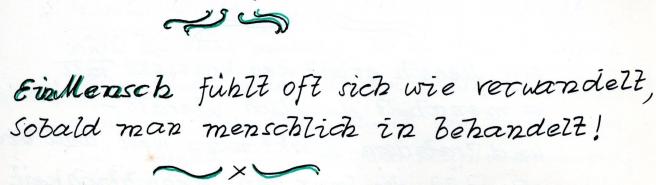 Ein Mensch fühlt oft sich wie verwandelt,
Sobald man menschlich in behandelt!